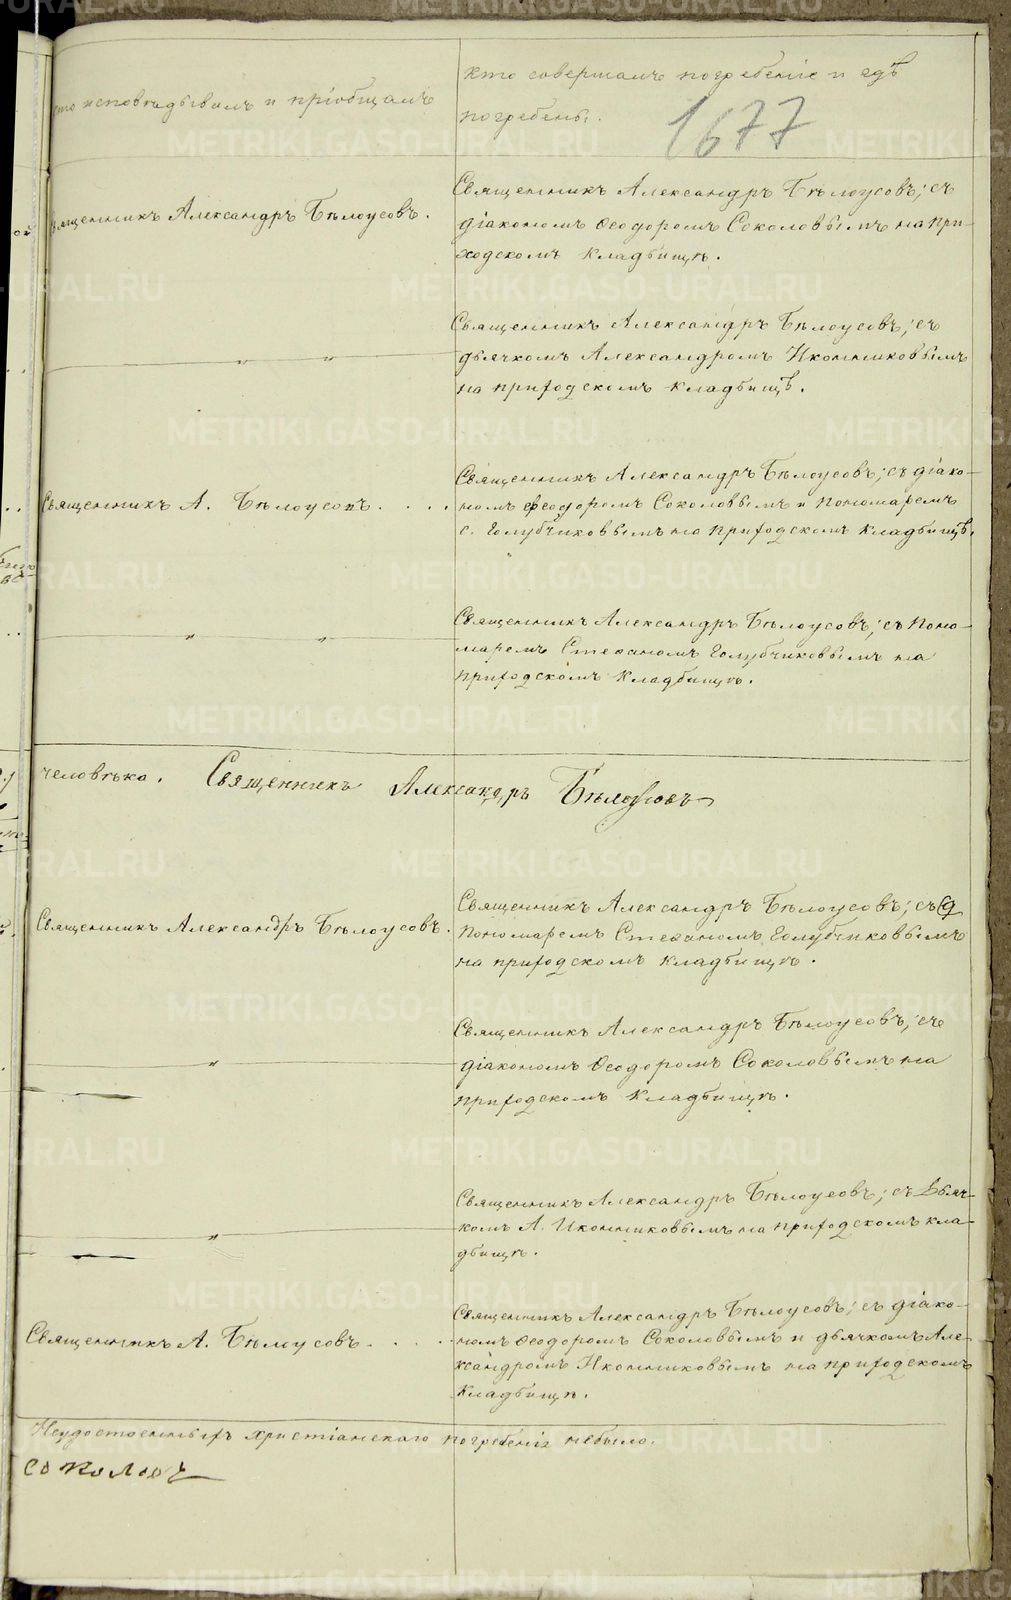 кто исповѣдывалъ и пріобщалъ
кто совершалъ погребеніе и гдѣ
погребены.
1677
Священникъ Александръ Бѣлоусовъ.
Священникъ Александръ Бѣлоусовъ, съ
діакономъ Ѳеодоромъ Соколовымъ на при-
ходскомъ кладбищѣ.
„ „
Священникъ Александръ Бѣлоусовъ, съ
дьячкомъ Александромъ Иконниковымъ
на приходскомъ кладбищѣ.
Священникъ А. Бѣлоусовъ. . . .
Священникъ Александръ Бѣлоусовъ, съ діако-
номъ Ѳеодоромъ Соколовымъ и пономаремъ
С. Голубчиковымъ на приходскомъ кладбищѣ.
„ „
Священникъ Александръ Бѣлоусовъ, съ поно-
маремъ Стефаномъ Голубчиковымъ на
приходскомъ кладбищѣ.
человѣка. Священникъ Александръ Бѣлоусовъ
Священникъ Александръ Бѣлоусовъ.
Священникъ Александръ Бѣлоусовъ; съ
пономаремъ Стефаномъ Голубчиковымъ
на приходскомъ кладбищѣ.
„
Священникъ Александръ Бѣлоусовъ, съ
діакономъ Ѳеодоромъ Соколовымъ на
приходскомъ кладбищѣ.
„
Священникъ Александръ Бѣлоусовъ; съ дьяч-
комъ А. Иконниковымъ на приходскомъ кла-
дбищѣ.
Священникъ А. Бѣлоусовъ. . . .
Священникъ Александръ Бѣлоусовъ; съ діако-
номъ Ѳеодоромъ Соколовымъ и дьячкомъ Але-
ксандромъ Иконниковымъ на приходскомъ
кладбищѣ.
Неудостоенныхъ христіанскаго погребенія небыло.
Соколовъ